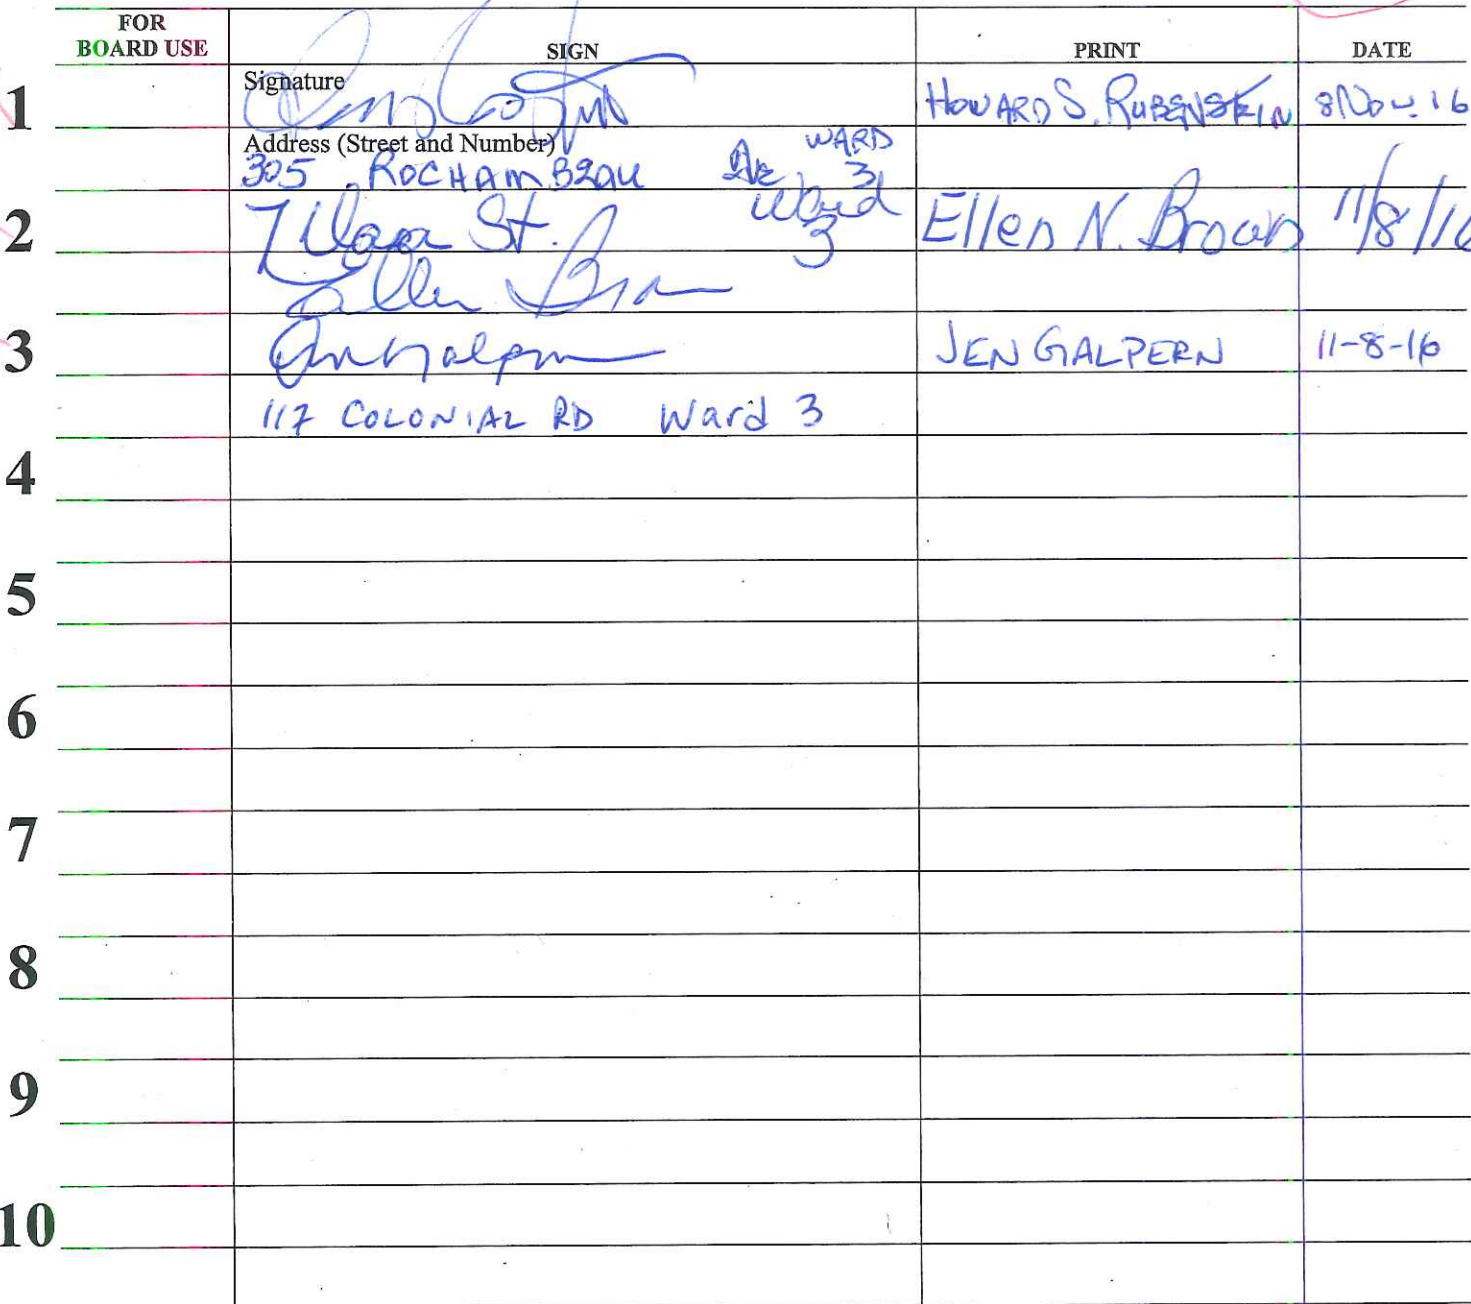 FOR BOARD USE SIGN PRINT DATE
1 Signature HOWARD S. RUBENSTEIN 8 Nov. 16
Address (Street and Number)
305 ROCHAMBEAU Ave WARD 3
2 7 St. Ward 3 Ellen N. Brown 11/8/16
Ellen Brown
3 Jen Galpern JEN GALPERN 11-8-16
117 COLONIAL RD Ward 3
4
5
6
7
8
9
10